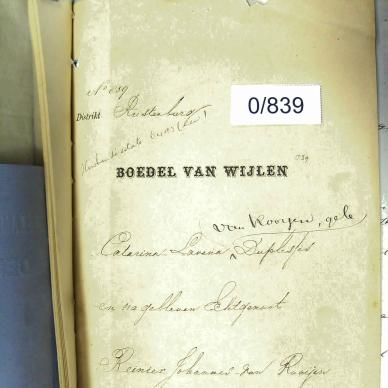 No 839
0/839
Distrikt Rustenburg
BOEDEL VAN WIJLEN
839
van Rooyen, geb
Catarina Lavina Duplessies
en nagebleven Echtgenoot
Reinier Johannes van Rooijen